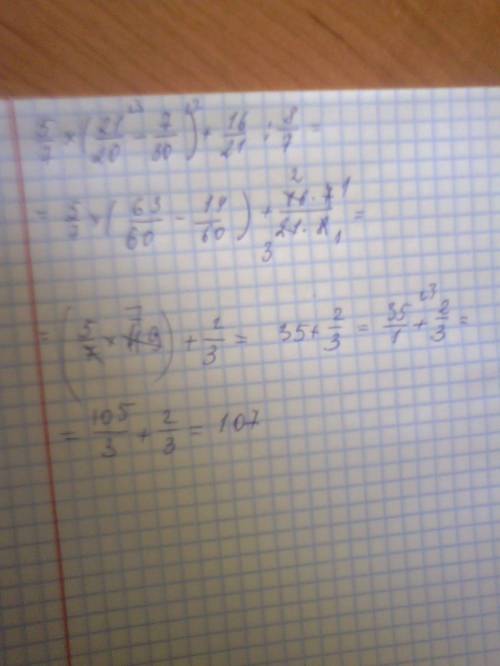 5/7 × (21/20 ·3 − 7/30 ·2) + 16/21 : 8/7 =
= 5/7 × (63/60 − 14/60) + 2 16·7 1 / 3 21·8 1 =
= (5/7 × 49 7) + 2/3 = 35 + 2/3 = 35/1 ·3 + 2/3 =
= 105/3 + 2/3 = 107